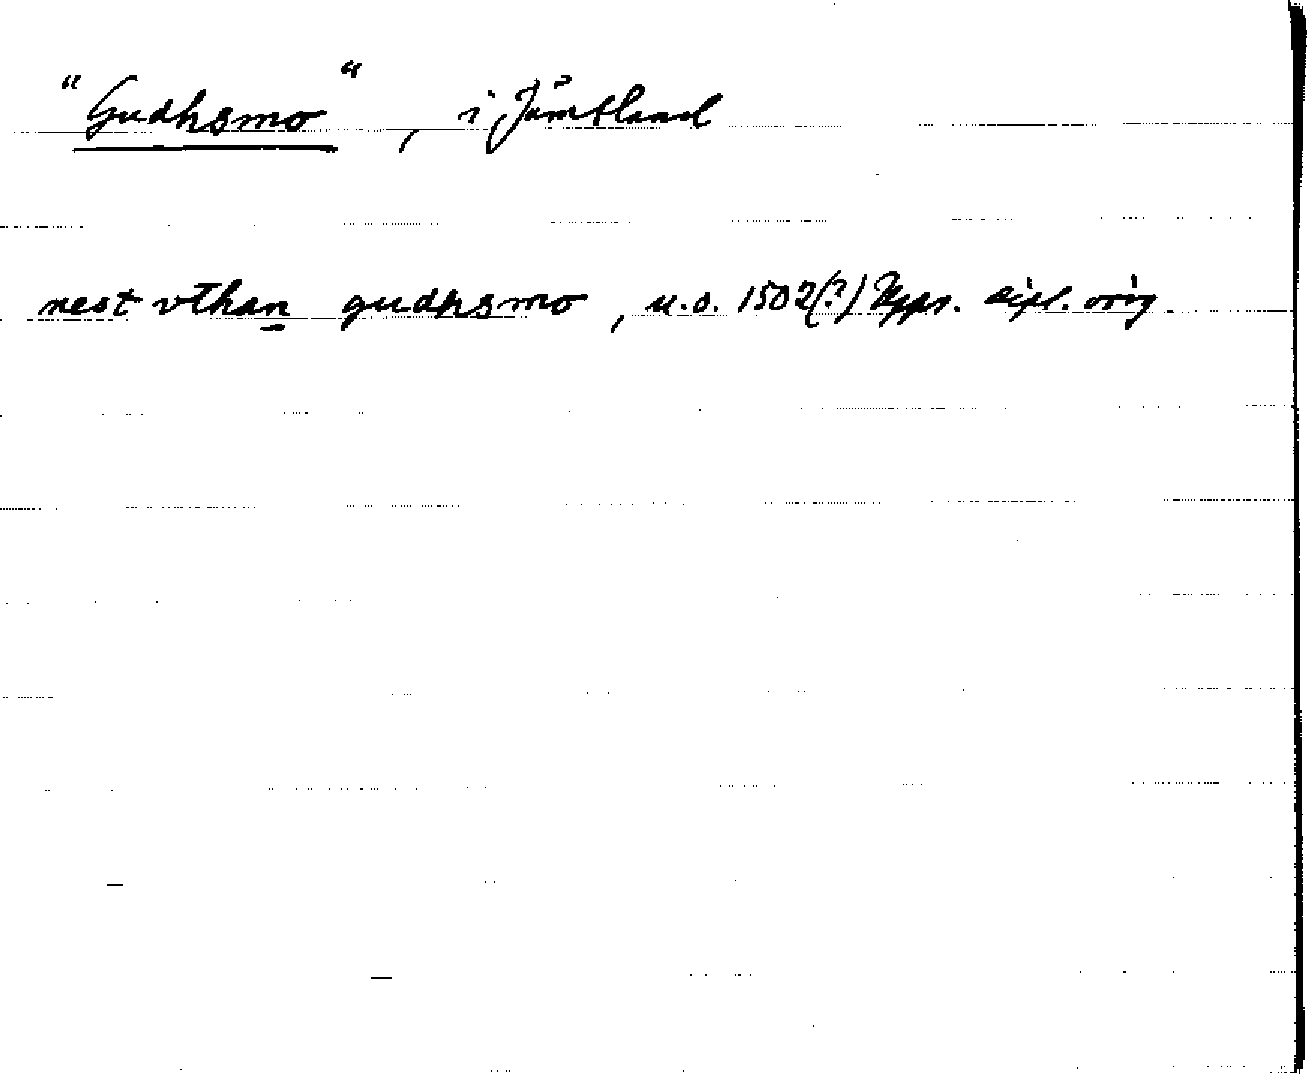 "Gudhsmo", i Jämtland
nest vthan gudhsmo, u.o. 1502(?) Upps. dipl. orig.